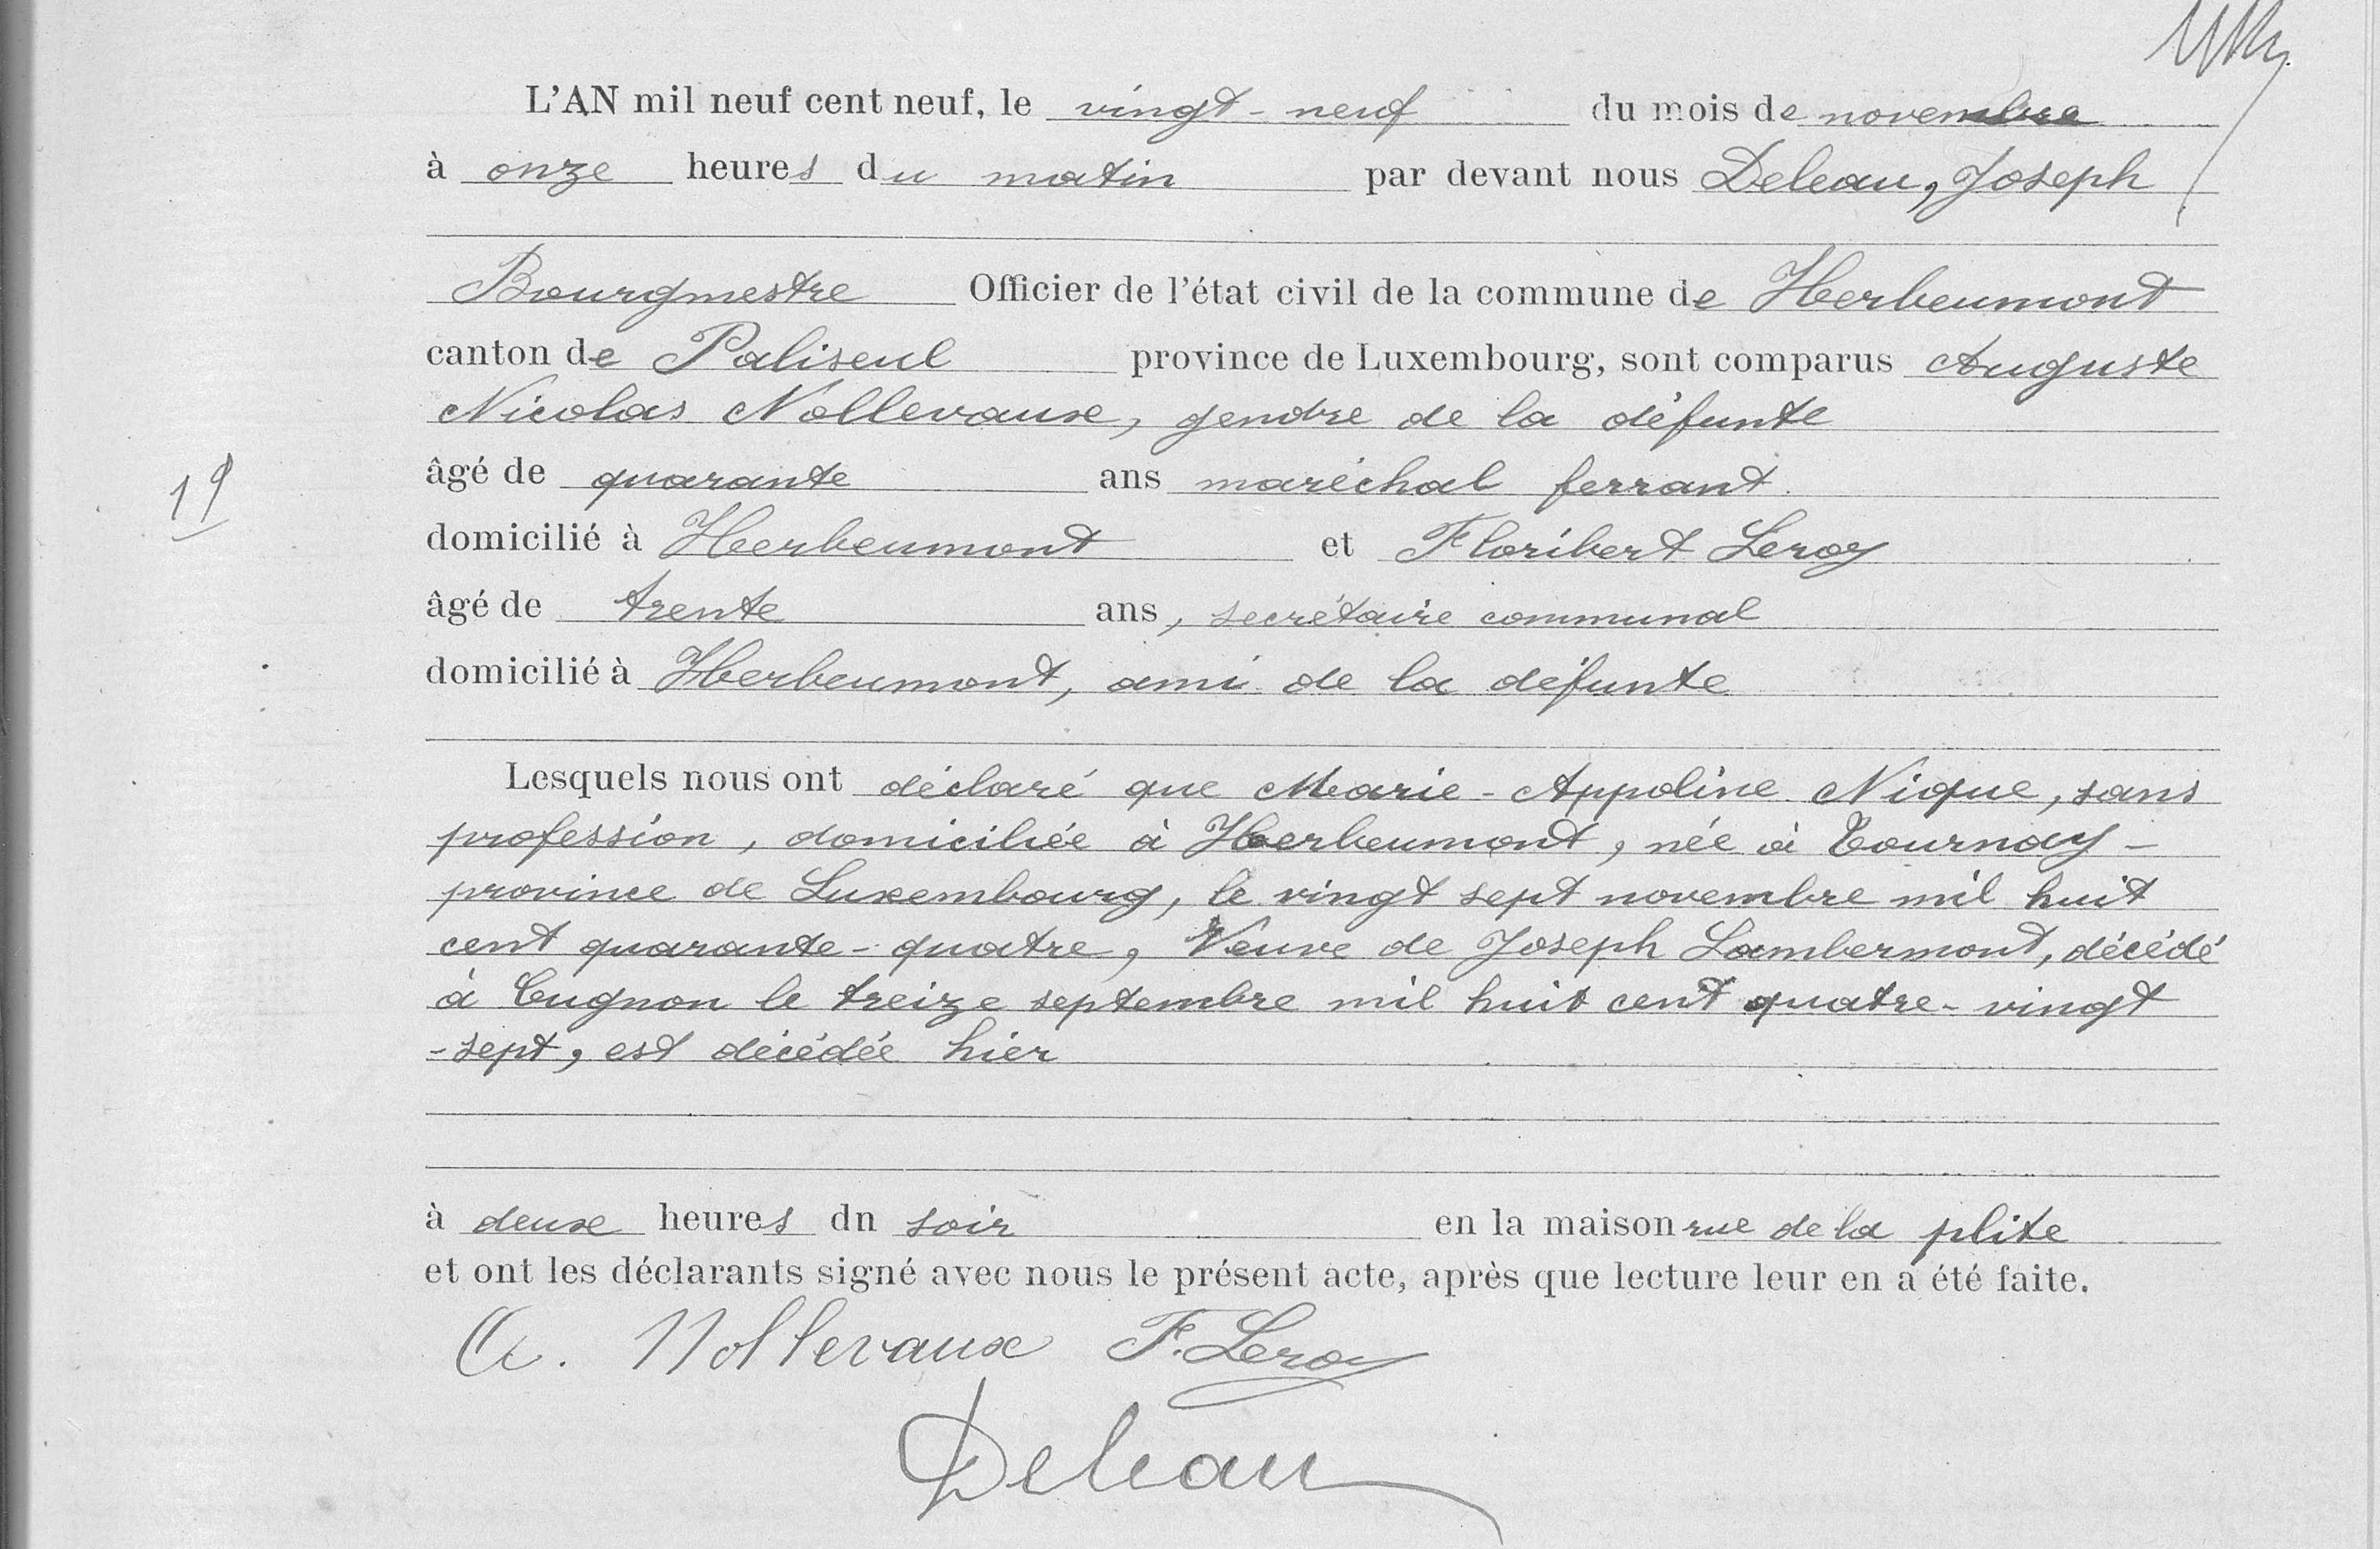 L'AN mil neuf cent neuf, le vingt-neuf du mois de novembre
à onze heures du matin par devant nous Deleau, Joseph
Bourgmestre Officier de l'état civil de la commune de Herbeumont
canton de Paliseul province de Luxembourg, sont comparus Auguste
Nicolas Nollevaux, gendre de la défunte
âgé de quarante ans maréchal ferrant.
19
domicilié à Herbeumont et Floribert Leroy
âgé de trente ans, secrétaire communal
domicilié à Herbeumont, ami de la défunte
Lesquels nous ont déclaré que Marie-Appoline Nique, sans
profession, domiciliée à Herbeumont, née à Tournay -
province de Luxembourg, le vingt sept novembre mil huit
cent quarante-quatre, Veuve de Joseph Lambermont, décédé
à Cugnon le treize septembre mil huit cent quatre-vingt
-sept, est décédée hier
à deux heures dn soir en la maison rue de la plite
et ont les déclarants signé avec nous le présent acte, après que lecture leur en a été faite.
A. Nollevaux F. Leroy
Deleau